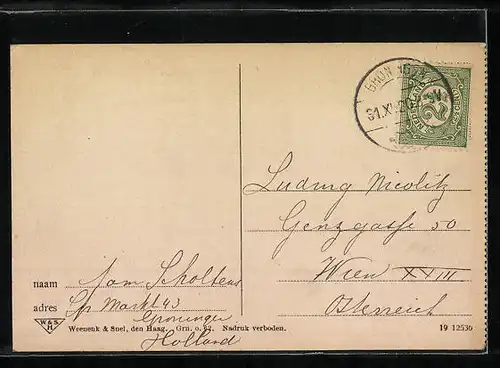 GRONINGEN
31.XII.20
NEDERLAND
2½
Ludwig Nicolitz
Genzgasse 50
Wien XVIII
Österreich
naam Tom Scholtens
adres Gr Markt 43
Groningen
Holland
W&S
H
Weenenk & Snel, den Haag. Grn. o. 42. Nadruk verboden.
19 12530